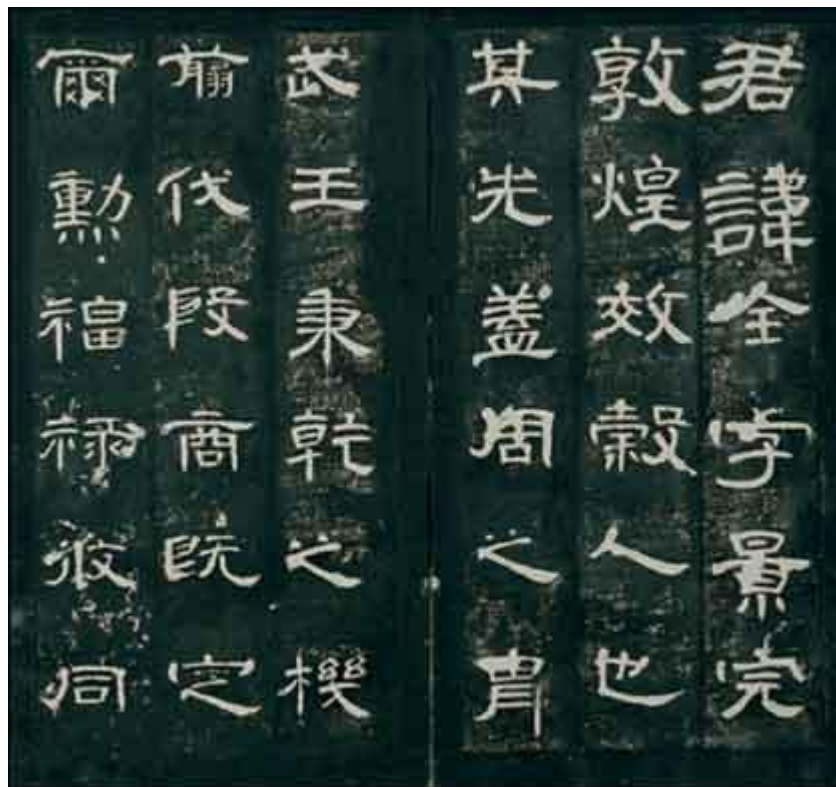 君諱全字景完
敦煌效穀人也
其先蓋周之冑
武王秉乾之機
翦伐殷商既定
爾勲福祿攸同